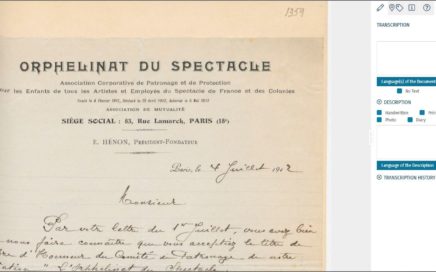 1359
ORPHELINAT DU SPECTACLE
Association Corporative de Patronage et de Protection
our les Enfants de tous les Artistes et Employés du Spectacle de France et des Colonies
ASSOCIATION DE MUTUALITÉ
SIÈGE SOCIAL : Rue Lamarck, PARIS (18e)
E. HÉNON, PRÉSIDENT-FONDATEUR
Paris, le 4 Juillet 1912
Monsieur
Par votre lettre du 1er Juillet, vous avez bien
nous faire connaître que vous acceptiez le titre de
d'Honneur du Comité de Patronage de notre
"L'Orphelinat du Spectacle
TRANSCRIPTION
Language(s) of the Document
No Text
DESCRIPTION
Handwritten
Photo
Diary
Language of the Description
TRANSCRIPTION HISTORY